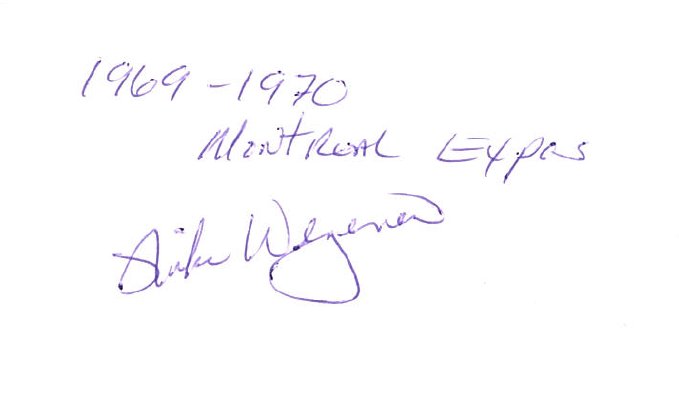 1969-1970
Montreal Expos
Mike Wegener